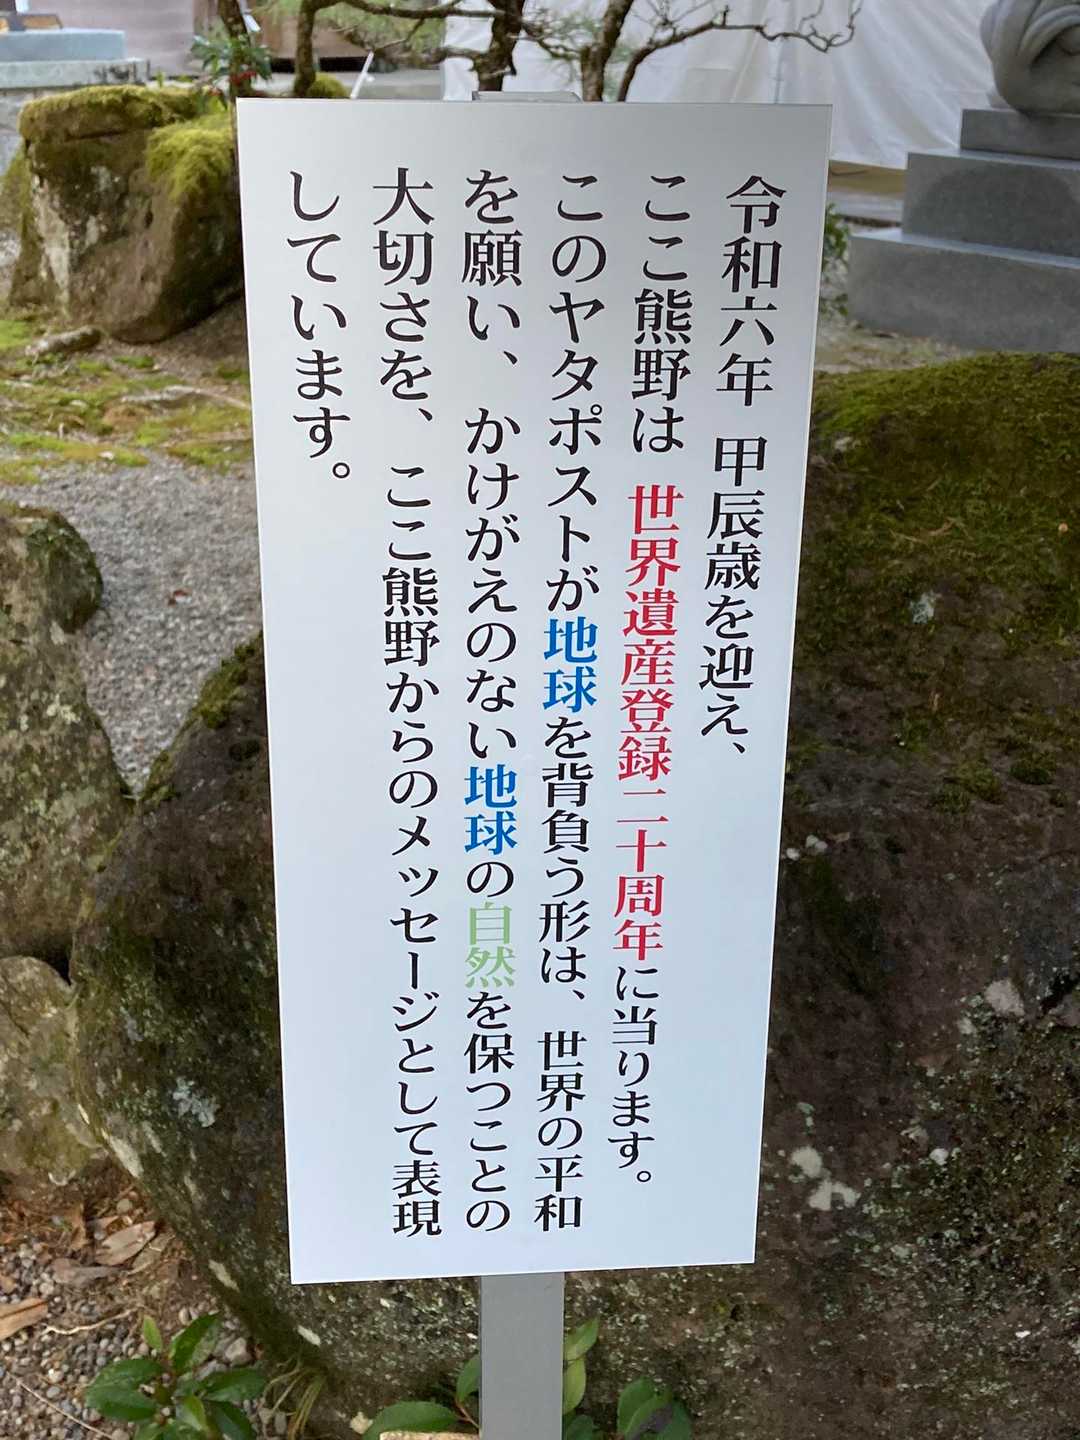 令和六年 甲辰歳を迎え、
ここ熊野は 世界遺産登録二十周年に当ります。
このヤタポストが地球を背負う形は、世界の平和
を願い、かけがえのない地球の自然を保つことの
大切さを、ここ熊野からのメッセージとして表現
しています。